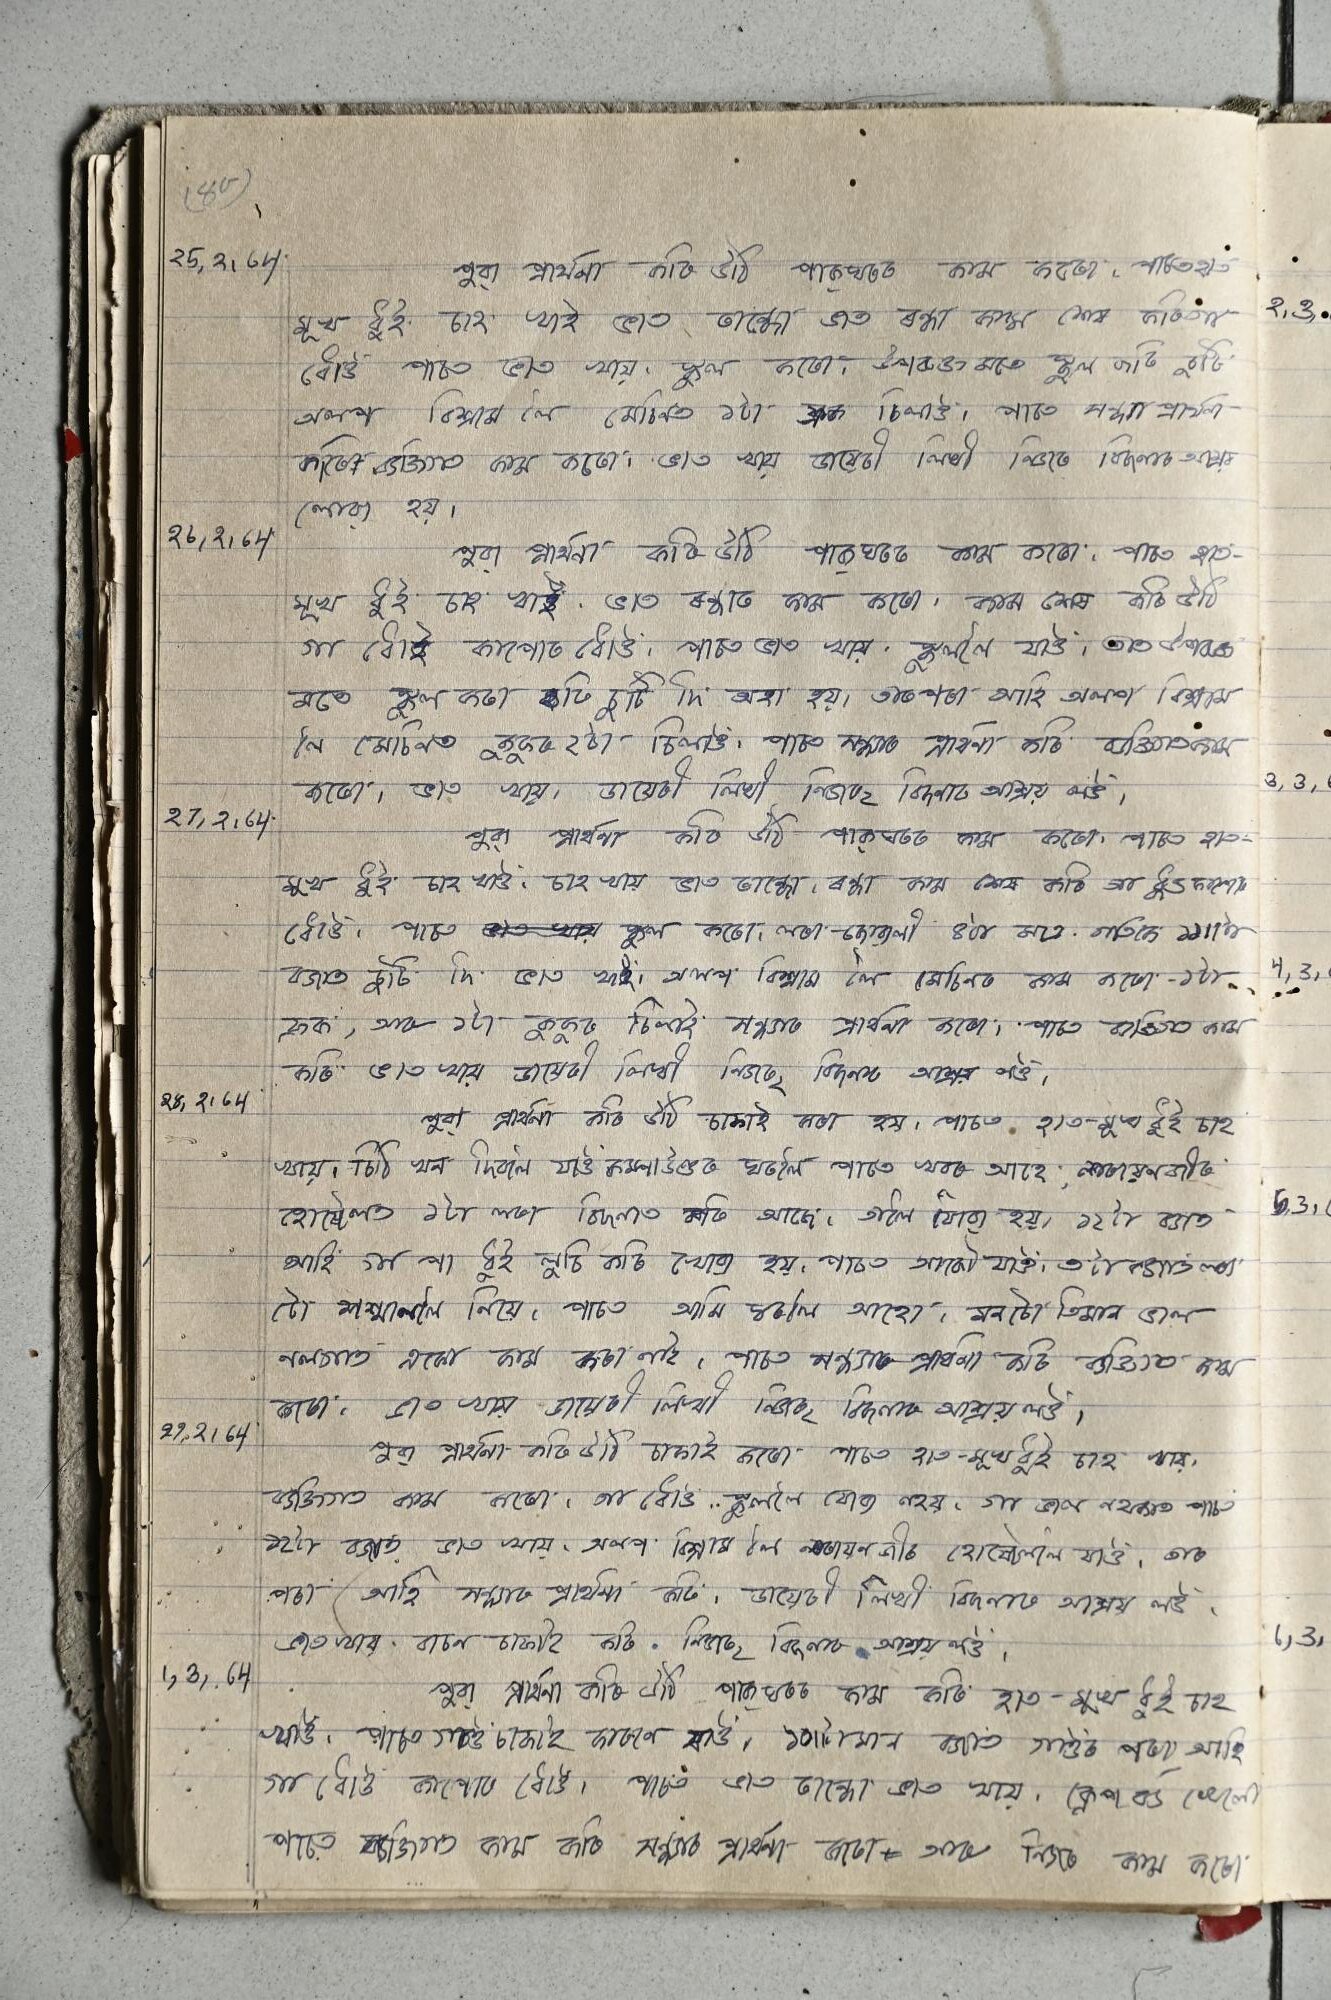 (৪৮)
25,2,64
পুৱা প্ৰাৰ্থনা কৰি উঠি পাক্‌ঘৰত কাম কৰো। পাচত হাত
মুখ ধুই চাহ খাই ভাত ৰান্ধো ভাত ৰন্ধা কাম শেষ কৰি গা
ধোওঁ পাচত ভাত খায় স্কুল কৰো। উপৰুক্ত মতে স্কুল কৰি চুটি
অলপ বিশ্ৰাম লৈ মেচিনত ১টা ফ্ৰক চিলাওঁ। পাচত সন্ধ্যা প্ৰাৰ্থনা
কৰি ব্যক্তিগত কাম কৰো। ভাত খায় ডায়েৰী লিখী নিজৰ বিচনাত আশ্ৰয়
লোৱা হয়।
26,2,64
পুৱা প্ৰাৰ্থনা কৰি উঠি পাক্‌ঘৰত কাম কৰো। পাচত হাত-
মুখ ধুই চাহ খাই ভাত ৰন্ধাত কাম কৰো। কাম শেষ কৰি উঠি
গা ধোই কাপোৰ ধোওঁ। পাচত ভাত খায় স্কুললৈ যাওঁ। উপৰুক্ত
মতে স্কুল কৰা চুটি দি অহা হয়। তাৰপৰা আহি অলপ বিশ্ৰাম
লৈ মেচিনত কুকুৰ ২টা চিলাওঁ। পাচত সন্ধ্যাত প্ৰাৰ্থনা কৰি ব্যক্তিগত কাম
কৰো। ভাত খায়। ডায়েৰী লিখী নিজৰ বিচনাত আশ্ৰয় লওঁ।
27,2,64
পুৱা প্ৰাৰ্থনা কৰি উঠি পাক্‌ঘৰত কাম কৰো। পাচত হাত-
মুখ ধুই চাহ খাওঁ। চাহ খায় ভাত ৰান্ধো। ৰন্ধা কাম শেষ কৰি গা ধুই কাপোৰ
ধোওঁ। পাচত ভাত খায় স্কুল কৰো। লৰা-ছোৱালী ৪টা মাত্ৰ গতিকে ১১॥টা
বজাত চুটি দি ভাত খাই। অলপ বিশ্ৰাম লৈ মেচিনত কাম কৰো - ১টা
ফ্ৰক, আৰু ১টা কুকুৰ চিলাই সন্ধ্যাত প্ৰাৰ্থনা কৰো। পাচত ব্যক্তিগত কাম
কৰি ভাত খায় ডায়েৰী লিখী নিজৰ বিচনাত আশ্ৰয় লওঁ।
28,2,64
পুৱা প্ৰাৰ্থনা কৰি উঠি চাফাই কৰা হয়। পাচত হাত-মুখ ধুই চাহ
খায়। চিঠি খন দিবলৈ যাওঁ কম্পাউণ্ডৰ ঘৰলৈ পাচত খবৰ আহে
হোষ্টেলত ১টা লৰা বিচনাত মৰি আছে। তালৈ যোৱা হয়। ১২টা বজাত
আহি গা পা ধুই লুচি কৰি খোৱা হয়। পাচত আকৌ যাওঁ। ৩টা বজাত লৰা
টো শ্মশানলৈ নিয়ে। পাচত আমি ঘৰলৈ আহো। মনটো তিমান ভাল
নলগাত একো কাম কৰা নাই। পাচত সন্ধ্যাত প্ৰাৰ্থনা কৰি ব্যক্তিগত কাম
কৰো। ভাত খায় ডায়েৰী লিখী নিজৰ বিচনাত আশ্ৰয় লওঁ।
29,2,64
পুৱা প্ৰাৰ্থনা কৰি উঠি চাফাই কৰো পাচত হাত-মুখ ধুই চাহ খায়।
ব্যক্তিগত কাম কৰো। গা ধোওঁ। স্কুললৈ যোৱা নহয়। গা ভাল নথকাত পাচত
১২টা বজাত ভাত খায়। অলপ বিশ্ৰাম লৈ হোষ্টেললৈ যাওঁ। তাৰ
পৰা আহি সন্ধ্যাত প্ৰাৰ্থনা কৰি। ডায়েৰী লিখী বিচনাত আশ্ৰয় লওঁ।
ভাত খায় বাচন চাফাই কৰি। নিজৰ বিচনাত আশ্ৰয় লওঁ।
1,3,64
পুৱা প্ৰাৰ্থনা কৰি উঠি পাক্‌ঘৰত কাম কৰি হাত-মুখ ধুই চাহ
খাওঁ। পাচত চাফাই যাওঁ। ১০॥টামান বজাত পৰা আহি
গা ধোওঁ কাপোৰ ধোওঁ। পাচত ভাত ৰান্ধো ভাত খায়। খেলো
পাচত ব্যক্তিগত কাম কৰি সন্ধ্যাত প্ৰাৰ্থনা কৰো আৰু নিজৰ কাম কৰো
2,3,
3,3,
4,3,
5,3,
6,3,